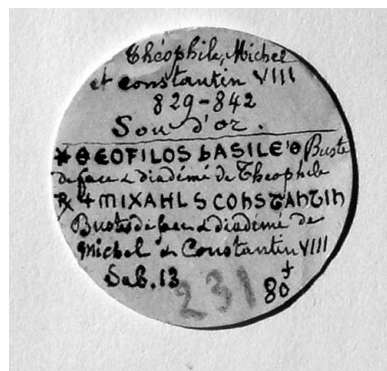 Théophile, Michel
et Constantin VIII
829-842
Sou d'or.
*ΘEOFILOS bASILE'Θ Buste
de face & diadémé de Theophile
℞ ✝MIXAHL S CONSTANTIN
Bustes de face & diadémé de
Michel & Constantin VIII
Sab. 13
231 80